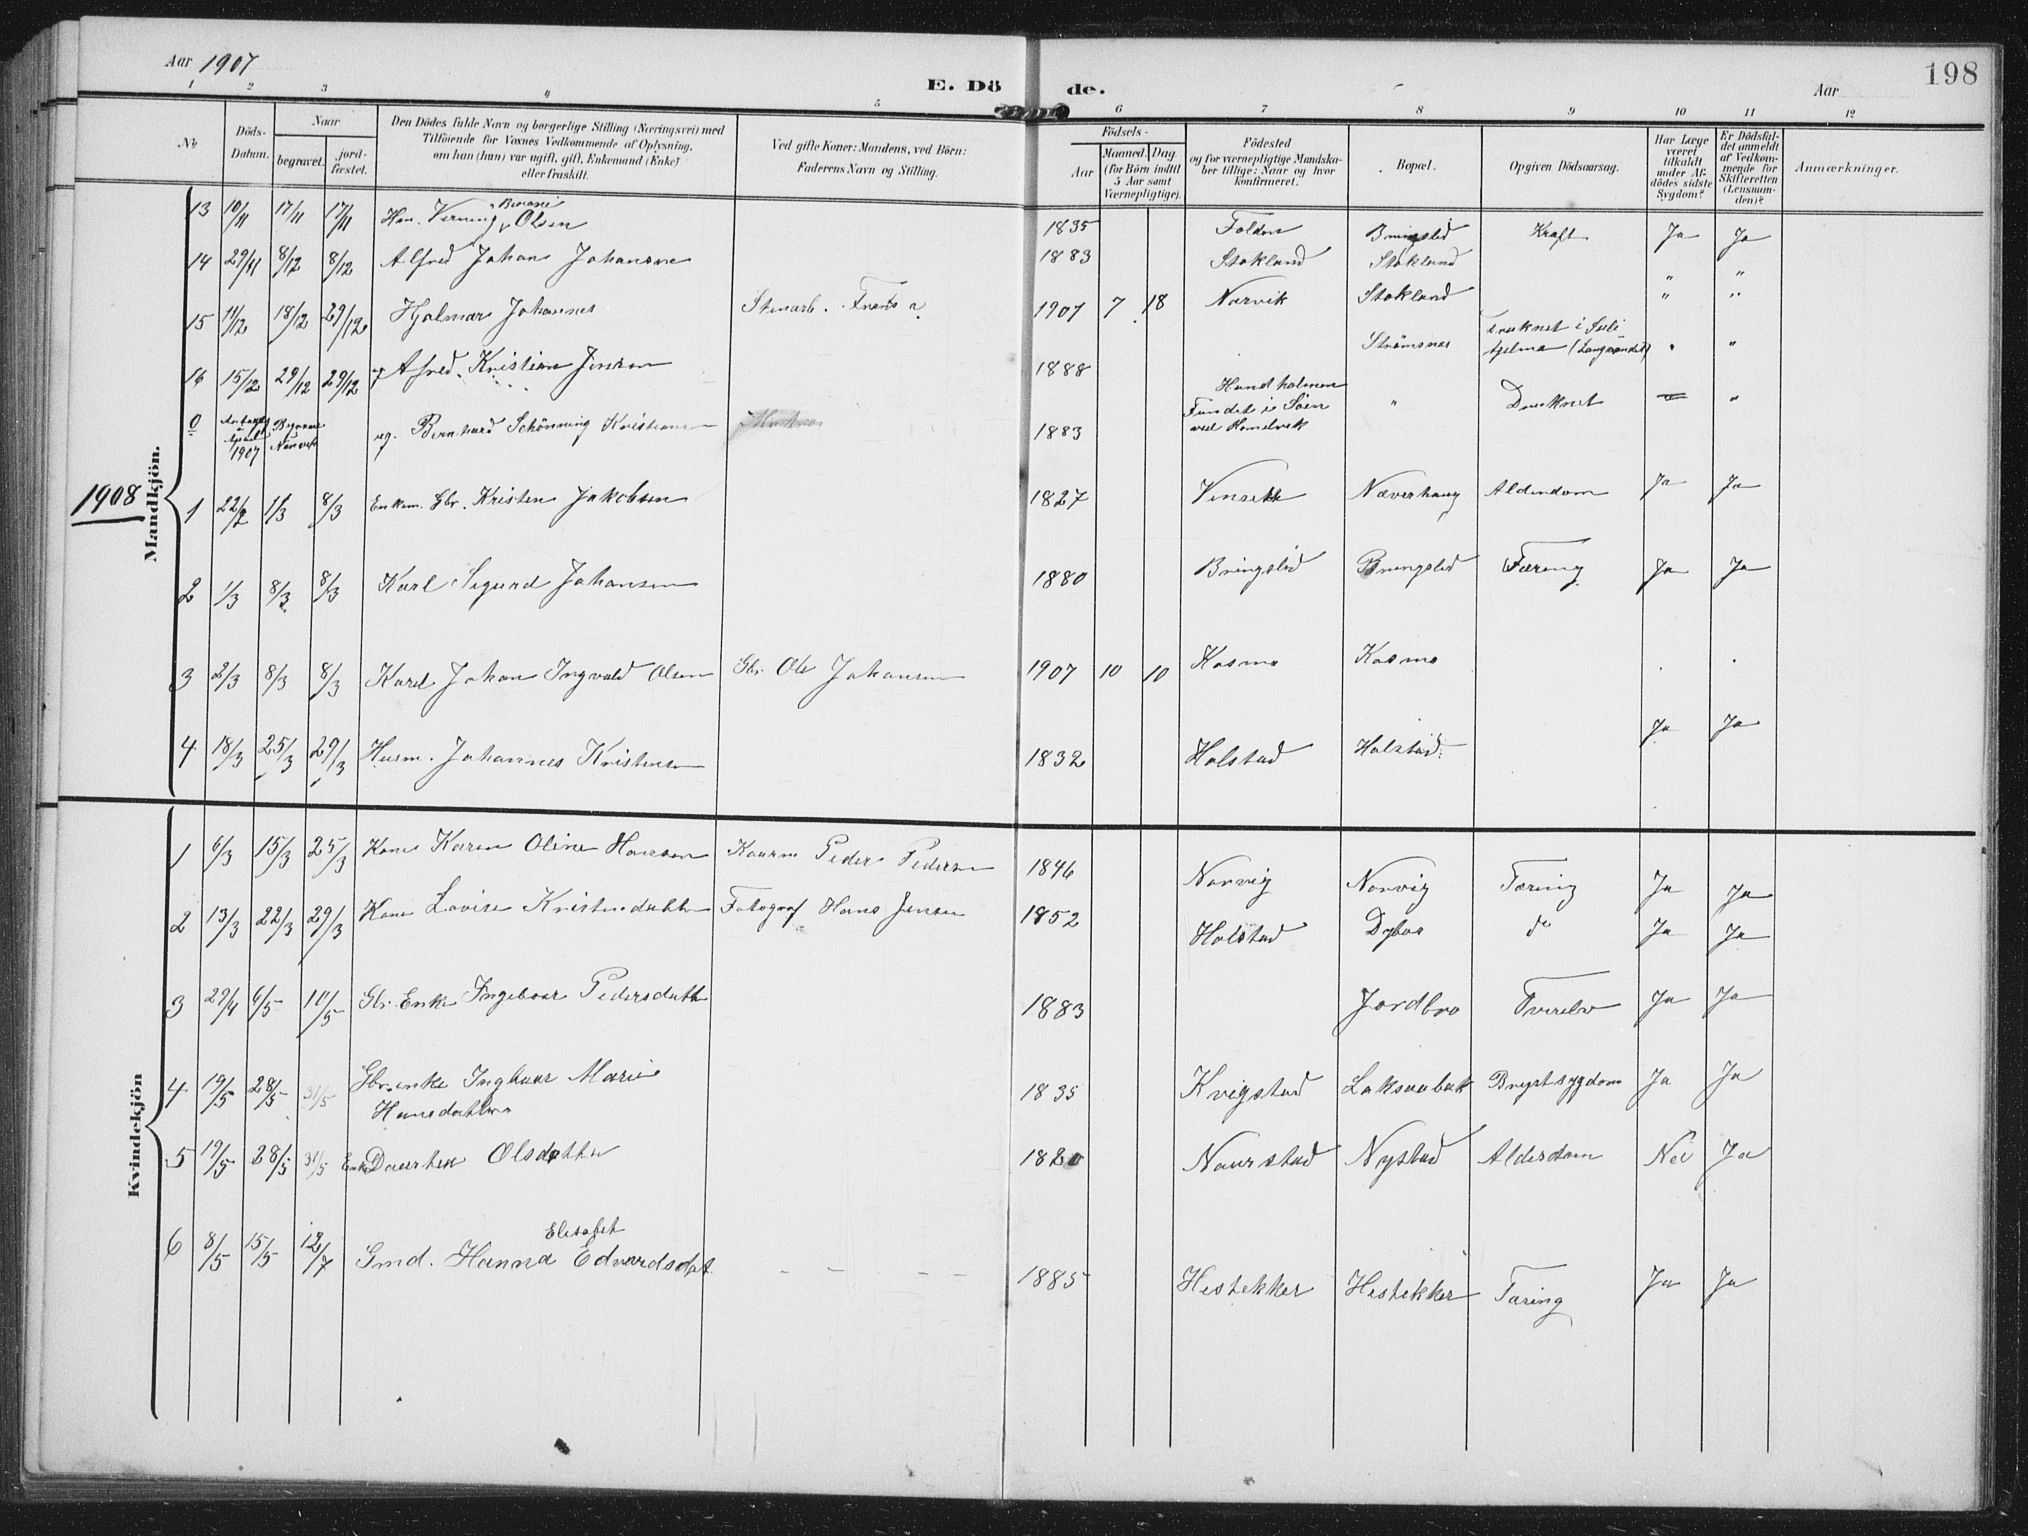 Aar 1907
E. Dö de.
Aar
198
1 2 3 4 5 6 7 8 9 10 11 12
No
Döds-Datum.
Naar
begravet.
jord-fæstet.
Den Dödes fulde Navn og borgerlige Stilling (Næringsvei) med
Tilföiende for Voxnes Vedkommende af Oplysning,
om han (hun) var ugift, gift, Enkemand (Enke)
eller fraskilt.
Ved gifte Koner: Mandens, ved Börn:
Faderens Navn og Stilling.
Födsels-
Aar
Maaned. Dag
(for Börn indtil
5 Aar samt
Værnepligtige).
Födested
og for værnepligtige Mandska-
ber tillige: Naar og hvor
konfirmeret.
Bopæl.
Opgiven Dödsaarsag.
Har Læge
været
tilkaldt
under Af-
dödes sidste
Sygdom?
Er Dödsfal-
det anmeldt
af Vedkom-
mende for
Skifteretten
(Lensman-
den)?
Anmærkninger.
Mandkjön.
13 10/11 17/11 17/11 Olsen 1835 Folden Bringslid Kræft Ja Ja
14 29/11 8/12 8/12 Alfred Johan Johansen 1883 Stokland Stokland " "
15 11/12 18/12 29/12 Hjalmar Johannes Stenarb. 1907 7 18 Narvik Stokland " "
16 15/12 29/12 29/12 Alfred Kristian Jensen 1888 Strømsnes Druknet i Suli
tjelma (Langvandet) "
0 April 1907 Begravet Narvik ug. Bernhard Schönning Kristiansen 1883 Hundholmen
Fundet i Søen
ved Hamelvik " Druknet "
1908
1 22/2 1/3 8/3 Enkem. Gbr. Kristen Jakobsen 1827 Vensett Næverhaug Alderdom Ja Ja
2 1/3 8/3 8/3 Karl Sigurd Johansen 1880 Bringslid Bringslid Tæring Ja Ja
3 2/3 8/3 8/3 Karl Johan Ingvald Olsen Gbr. Ole Johansen 1907 10 10 Kosmo Kosmo
4 18/3 25/3 29/3 Husm. Johannes Kristensen 1832 Holstad Holstad Ja Ja
Kvindekjön
1 6/3 15/3 25/3 Kone Karen Oline Hansen Kaarm Peder Pedersen 1846 Norvig Norvig Tæring Ja Ja
2 13/3 22/3 29/3 Kone Lovise Kristensdatter Fotograf Hans Jensen 1852 Holstad Dybos do Ja Ja
3 29/4 6/5 10/5 Gbr. Enke Ingeboar Pedersdatter 1883 Jordbro Ja Ja
4 19/5 28/5 31/5 Gbr. enke Ingboar Marie
Hansdatter 1835 Kvigstad Laksaabak Brystsygdom Ja Ja
5 19/5 28/5 31/5 Enke Daarthea Olsdatter 1820 Naurstad Nystad Alderdom Nei Ja
6 8/5 15/5 12/7 Gmd. Hanna Elisabet Edvardsdat. 1885 Hestekker Hestekker Tæring Ja Ja